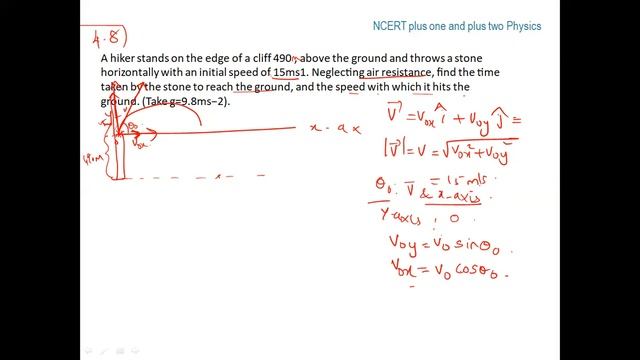 NCERT plus one and plus two Physics
4.8)
A hiker stands on the edge of a cliff 490m above the ground and throws a stone
horizontally with an initial speed of 15ms1. Neglecting air resistance, find the time
taken by the stone to reach the ground, and the speed with which it hits the
ground. (Take g=9.8ms−2).
θ₀
V₀ₓ
x - ax
490m
V⃗ = V₀ₓ î + V₀y ĵ =
|V⃗| = V = √V₀ₓ² + V₀y²
= 15 m/s
θ₀ : V⃗ & x-axis
Y-axis : 0
V₀y = V₀ sinθ₀
V₀ₓ = V₀ cosθ₀